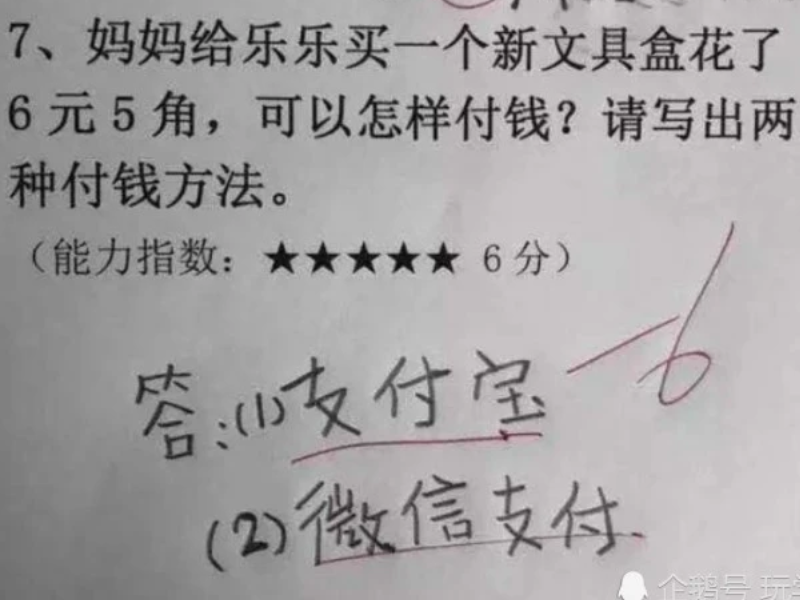 7、妈妈给乐乐买一个新文具盒花了
6元5角，可以怎样付钱？请写出两
种付钱方法。
（能力指数：★★★★★ 6分）
-6
答:(1)支付宝
(2)微信支付.
企鹅号